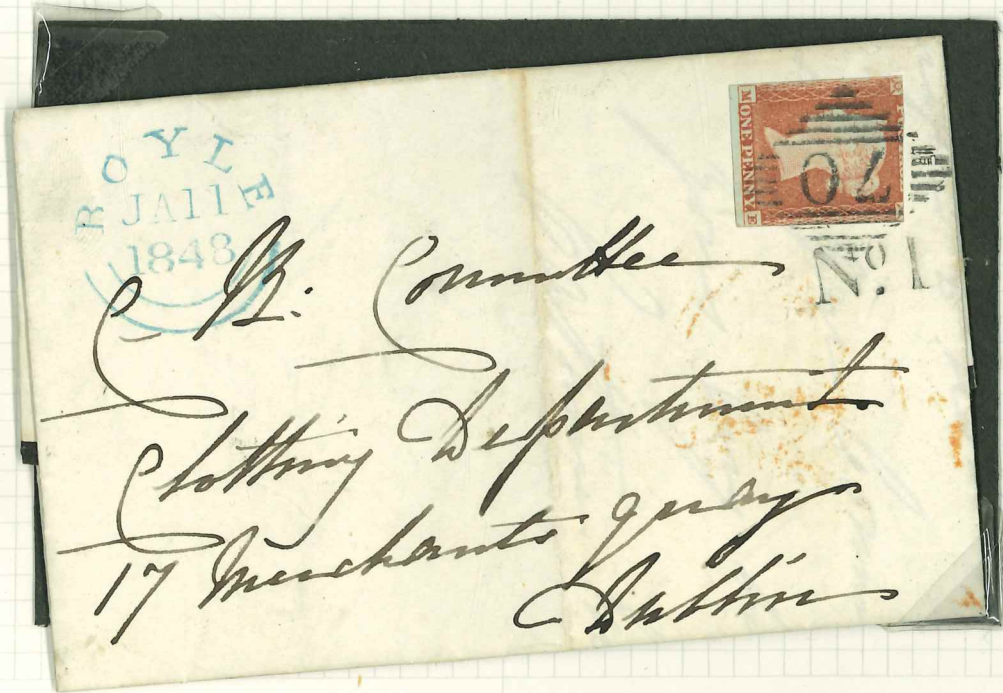 ROYLE
JA11
1848
ONE PENNY
70
No. 1
C. R. Committee
Clothing Department
17 Merchants quay
Dublin